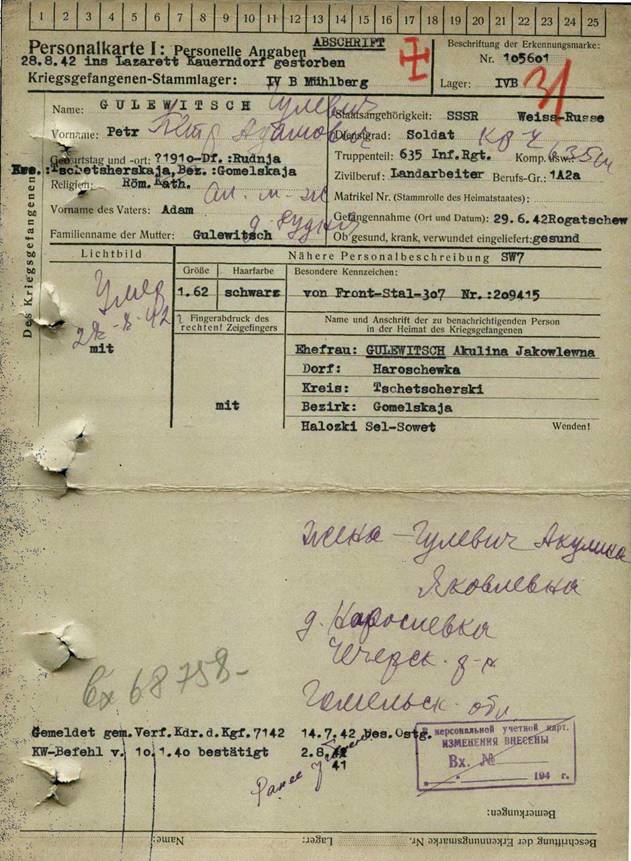 1 2 3 4 5 6 7 8 9 10 11 12 13 14 15 16 17 18 19 20 21 22 23 24 25
Personalkarte I: Personelle Angaben
ABSCHRIFT
Beschriftung der Erkennungsmarke:
28.8.42 ins Lazarett Kauerndorf gestorben
Nr. 105601
Kriegsgefangenen-Stammlager: IV B Mühlberg
Lager: IVB
Des Kriegsgefangenen
Name: GULEWITSCH Гулевич
Staatsangehörigkeit: SSSR Weiss-Russe
Vorname: Petr Петр Адамович
Dienstgrad: Soldat
Geburtstag und -ort: ?1910-Df.:Rudnja
Truppenteil: 635 Inf.Rgt. Komp. usw.:
Krs.:Tschetsherskaja, Bez.:Gomelskaja
Zivilberuf: Landarbeiter Berufs-Gr.: 1A2a
Religion: Röm. Kath.
Matrikel Nr. (Stammrolle des Heimatstaates):
Vorname des Vaters: Adam
Gefangennahme (Ort und Datum): 29.6.42Rogatschew
д. Рудня
Familienname der Mutter: Gulewitsch
Ob gesund, krank, verwundet eingeliefert: gesund
Lichtbild
Nähere Personalbeschreibung SW7
Größe Haarfarbe Besondere Kennzeichen:
1.62 schwarz von Front-Stal-307 Nr.:209415
Умер
28-8-42
mit
Fingerabdruck des
rechten! Zeigefingers
mit
Name und Anschrift der zu benachrichtigenden Person
in der Heimat des Kriegsgefangenen
Ehefrau: GULEWITSCH Akulina Jakowlewna
Dorf: Haroschewka
Kreis: Tschetscherski
Bezirk: Gomelskaja
Halozki Sel-Sowet
Wenden!
жена - Гулевич Акулина
Яковлевна
д.
Чечерск. р-н
Гомельск. обл
Вх 68758-
Gemeldet gem. Verf. Kdr. d. Kgf. 7142 14.7.42 bes. Ostg.
KW-Befehl v. 10.1.40 bestätigt 2.8.
41
Ранее
персональной учетной карт.
ИЗМЕНЕНИЯ ВНЕСЕНЫ
Вх. №
194 г.
Bemerkungen:
Name: Lager: Beschriftung der Erkennungsmarke Nr.